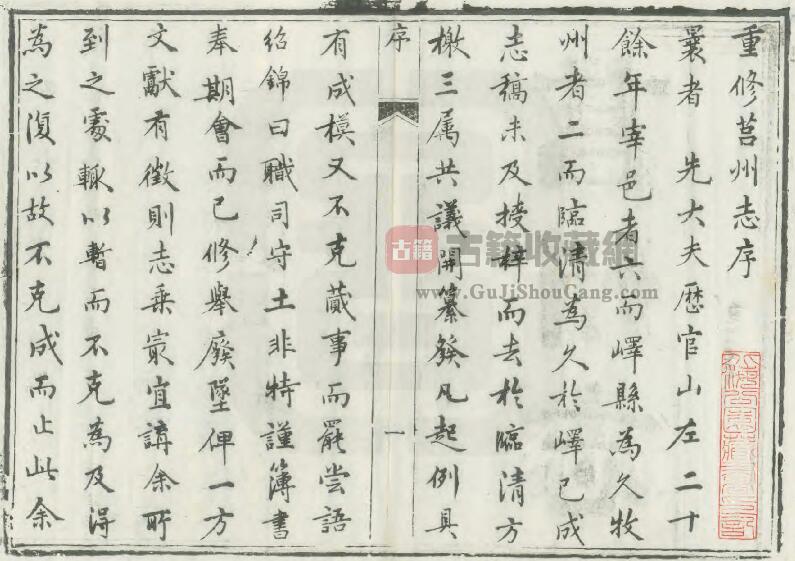 重修莒州志序
曩者　先大夫歷官山左二十
餘年宰邑者六而嶧縣為久牧
州者二而臨清為久於嶧已成
志稿未及授梓而去於臨清方
檄三属共議開纂發凡起例具
序
一
有成模又不克蕆事而罷嘗語
紹錦曰職司守土非特謹簿書
奉期會而已修舉廢墜俾一方
文獻有徵則志乘冣宜講余所
到之處輒以暫而不克為及得
為之復以故不克成而止此余
古籍
古籍收藏網
www.GuJiShouCang.com